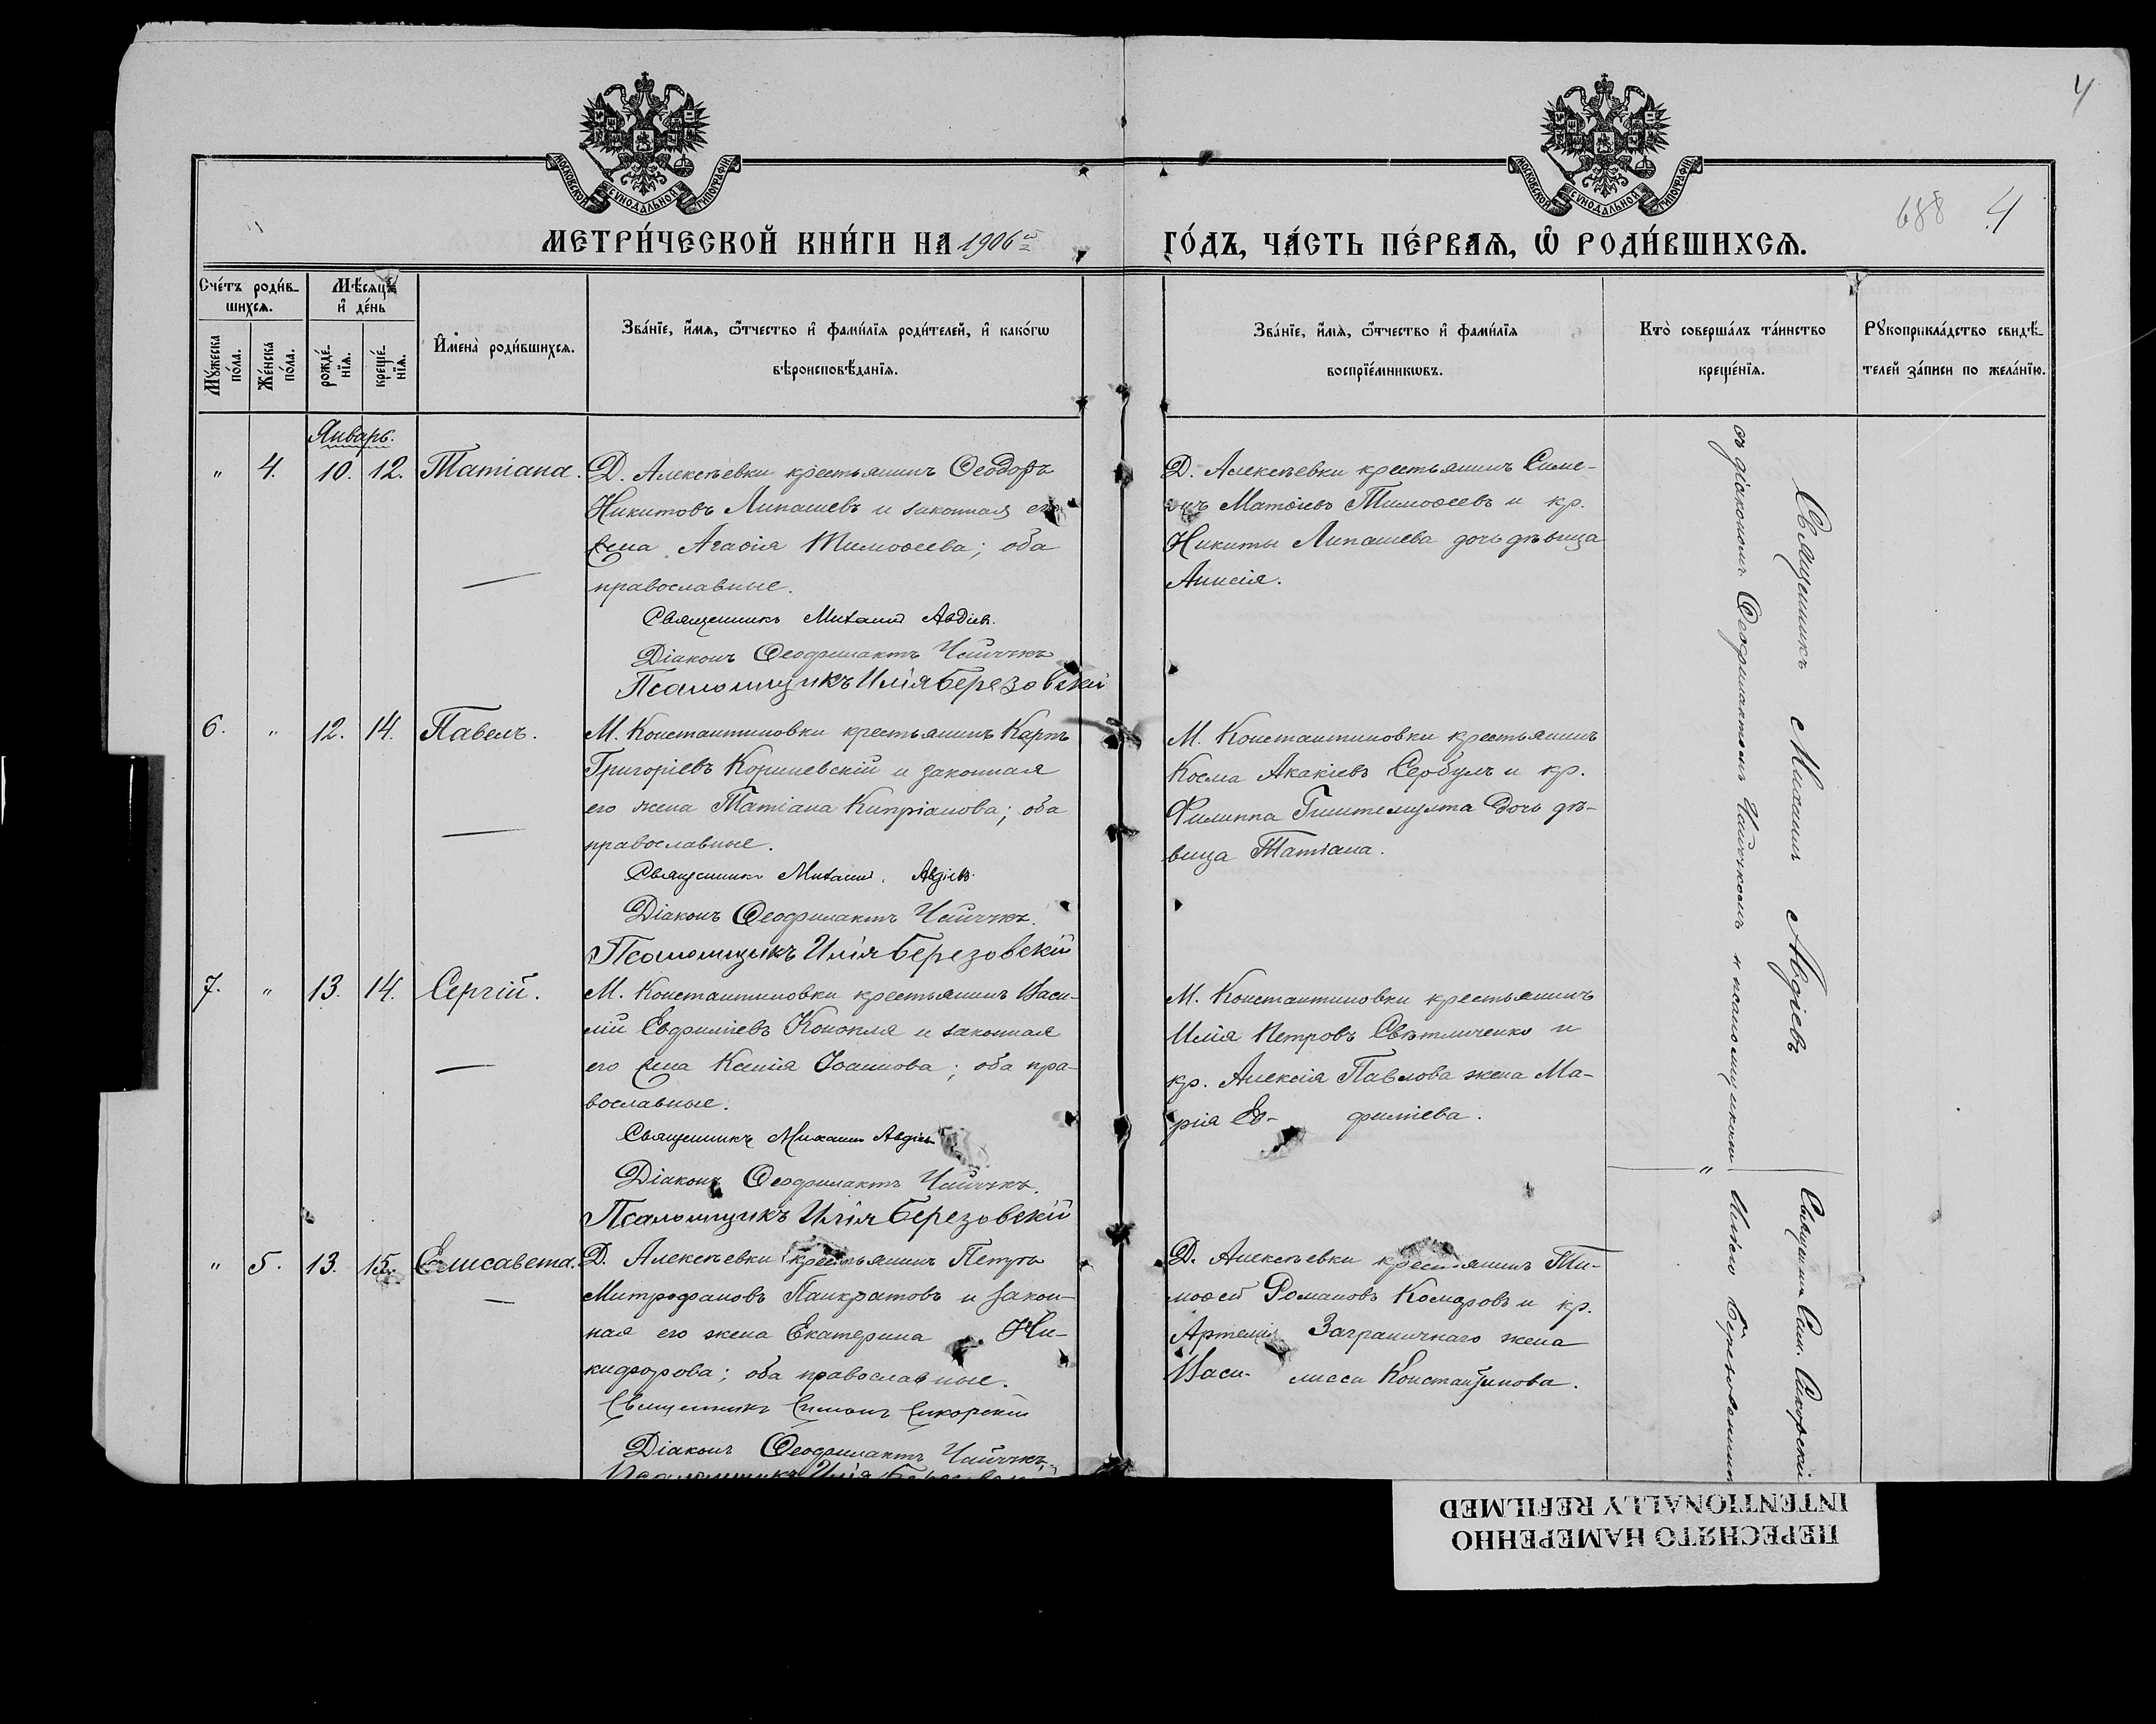 4
МОСКОВСКОЙ СѴНОДАЛЬНОЙ ТИПОГРАФІИ
МОСКОВСКОЙ СѴНОДАЛЬНОЙ ТИПОГРАФІИ
688 4
МЕТРИ́ЧЕСКОЙ КНИ́ГИ НА 1906й ГО́ДЪ, ЧА́СТЬ ПЕ́РВАѦ, Ѽ РОДИ́ВШИХСѦ.
Сче́тъ роди́в-
шихсѧ.
Мꙋ́жеска по́ла.
Же́нска по́ла.
Мѣ́сяцъ
и҆ де́нь
рожде́-
нїѧ.
креще́-
нїѧ.
И҆мена̀ роди́вшихсѧ.
Зва́нїе, и҆́мѧ, ѻ҆́тчество и҆ фами́лїѧ роди́телей, и҆ како́гѡ
вѣроисповѣ́данїѧ.
Зва́нїе, и҆́мѧ, ѻ҆́тчество и҆ фами́лїѧ
воспрїе́мникѡвъ.
Кто̀ соверша́лъ та́инство
креще́нїѧ.
Рꙋкоприкла́дство свидѣ́-
телей за́писи по жела́нїю.
Январь.
" 4. 10. 12. Татіана.
Д. Алексѣевки крестьянинъ Ѳеодоръ
Никитовъ Липашевъ и законная его
жена Агаѳія Тимоѳеева; оба
православные.
Священникъ Михаилъ Авдіевъ.
Діаконъ Ѳеофилактъ Чайчукъ
Псаломщикъ Илія Березовскій
Д. Алексѣевки крестьянинъ Симе-
онъ Матѳіевъ Тимоѳеевъ и кр.
Никиты Липашева дочь дѣвица
Анисія.
6. " 12. 14. Павелъ.
М. Константиновки крестьянинъ Карпъ
Григоріевъ Кориневскій и законная
его жена Татіана Кипріанова; оба
православные.
Священникъ Михаилъ Авдіевъ
Діаконъ Ѳеофилактъ Чайчукъ.
Псаломщикъ Илія Березовскій
М. Константиновки крестьянинъ
Косма Акакіевъ Сербулъ и кр.
Филиппа дочь дѣ-
вица Татіана.
7. " 13. 14. Сергій.
М. Константиновки крестьянинъ Васи-
лій Евфиміевъ Конопля и законная
его жена Ксенія Іоаннова; оба пра-
вославные.
Священникъ Михаилъ Авдіевъ
Діаконъ Ѳеофилактъ Чайчукъ.
Псаломщикъ Илія Березовскій
М. Константиновки крестьянинъ
Илія Петровъ Свѣтличенко и
кр. Алексія Павлова жена Ма-
рія Ев- фиміева.
" 5. 13. 15. Елисавета.
Д. Алексѣевки крестьянинъ Петръ
Митрофановъ Панкратовъ и закон-
ная его жена Екатерина Ни-
кифорова; оба православные.
Священникъ Симеонъ Сикорскій
Діаконъ Ѳеофилактъ Чайчукъ.
Псаломщикъ Илія Березовскій
Д. Алексѣевки крестьянинъ Ти-
моѳей Романовъ Комаровъ и кр.
Артемія Заграничнаго жена
Васи- лисса Константинова.
Священникъ Михаилъ Авдіевъ
съ діакономъ Ѳеофилактомъ Чайчукомъ и псаломщикомъ
Священникъ Сим. Сикорскій
" Иліею Березовскимъ
ПЕРЕСНЯТО НАМЕРЕННО
INTENTIONALLY REFILMED